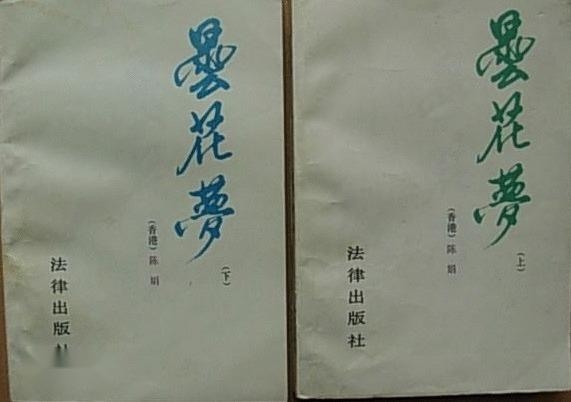 曇花夢
(下)
(香港)陈娟
法律出版社
曇花夢
(上)
(香港)陈娟
法律出版社